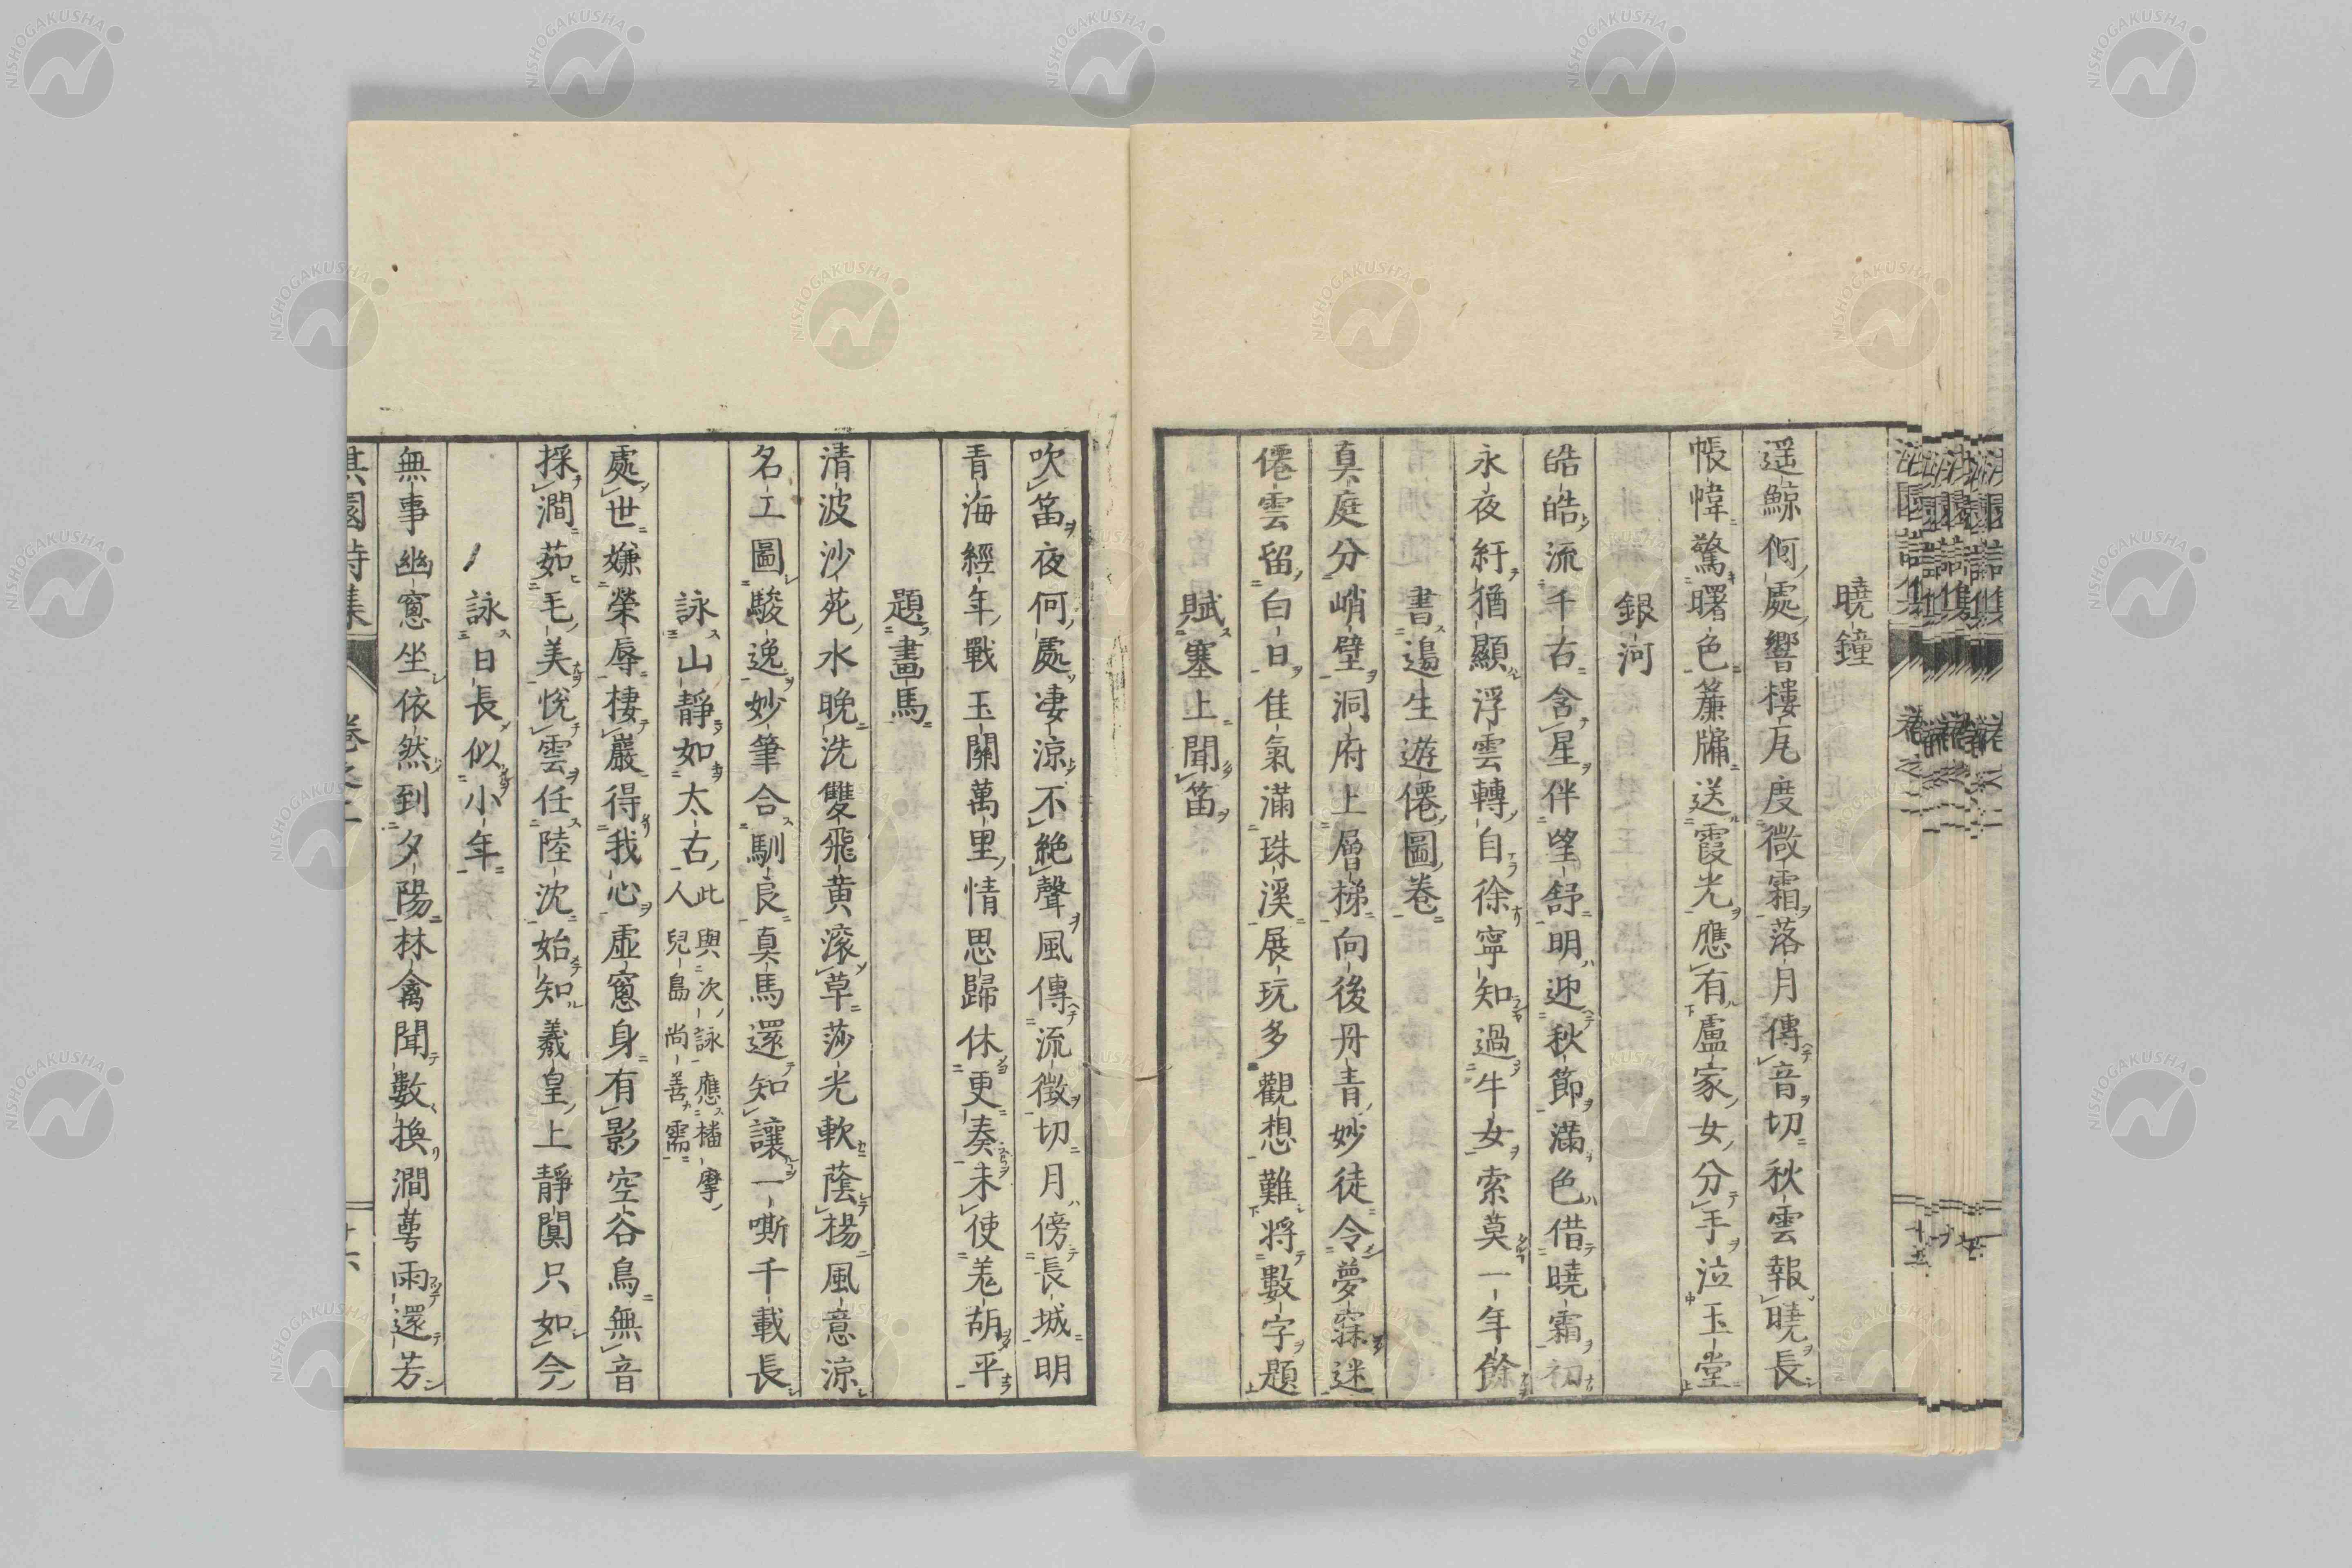 曉鐘
遥鯨何處響樓瓦度微霜落月傳音切秋雲報曉長
帳幃驚曙色簾牖送霞光應有盧家女分手泣玉堂
銀河
皓皓流千古含星伴望舒明迎秋節滿色借曉霜初
永夜紆猶顯浮雲轉自徐寧知過牛女索莫一年餘
書邉生遊僊圖卷
真庭分峭壁洞府上層梯向後丹青妙徒令夢寐迷
僊雲留白日佳氣滿珠溪展玩多觀想難將數字題
賦塞上聞笛
吹笛夜何處凄涼不絶聲風傳流徴切月傍長城明
青海經年戰玉關萬里情思歸休更奏未使羌胡平
題畫馬
清波沙苑水晩洗雙飛黄滚草莎光軟蔭楊風意涼
名工圖駿逸妙筆合馴良真馬還知讓一嘶千載長
詠山靜如太古 此與次詠應播摩人兒島尚善需
處世嫌榮辱棲巖得我心虛窻身有影空谷鳥無音
採澗茹毛美悅雲任陸沈始知羲皇上靜闃只如今
詠日長似小年
無事幽窻坐依然到夕陽林禽聞數換澗蕚雨還芳
淇園詩集 卷之二 十六
NISHOGAKUSHA